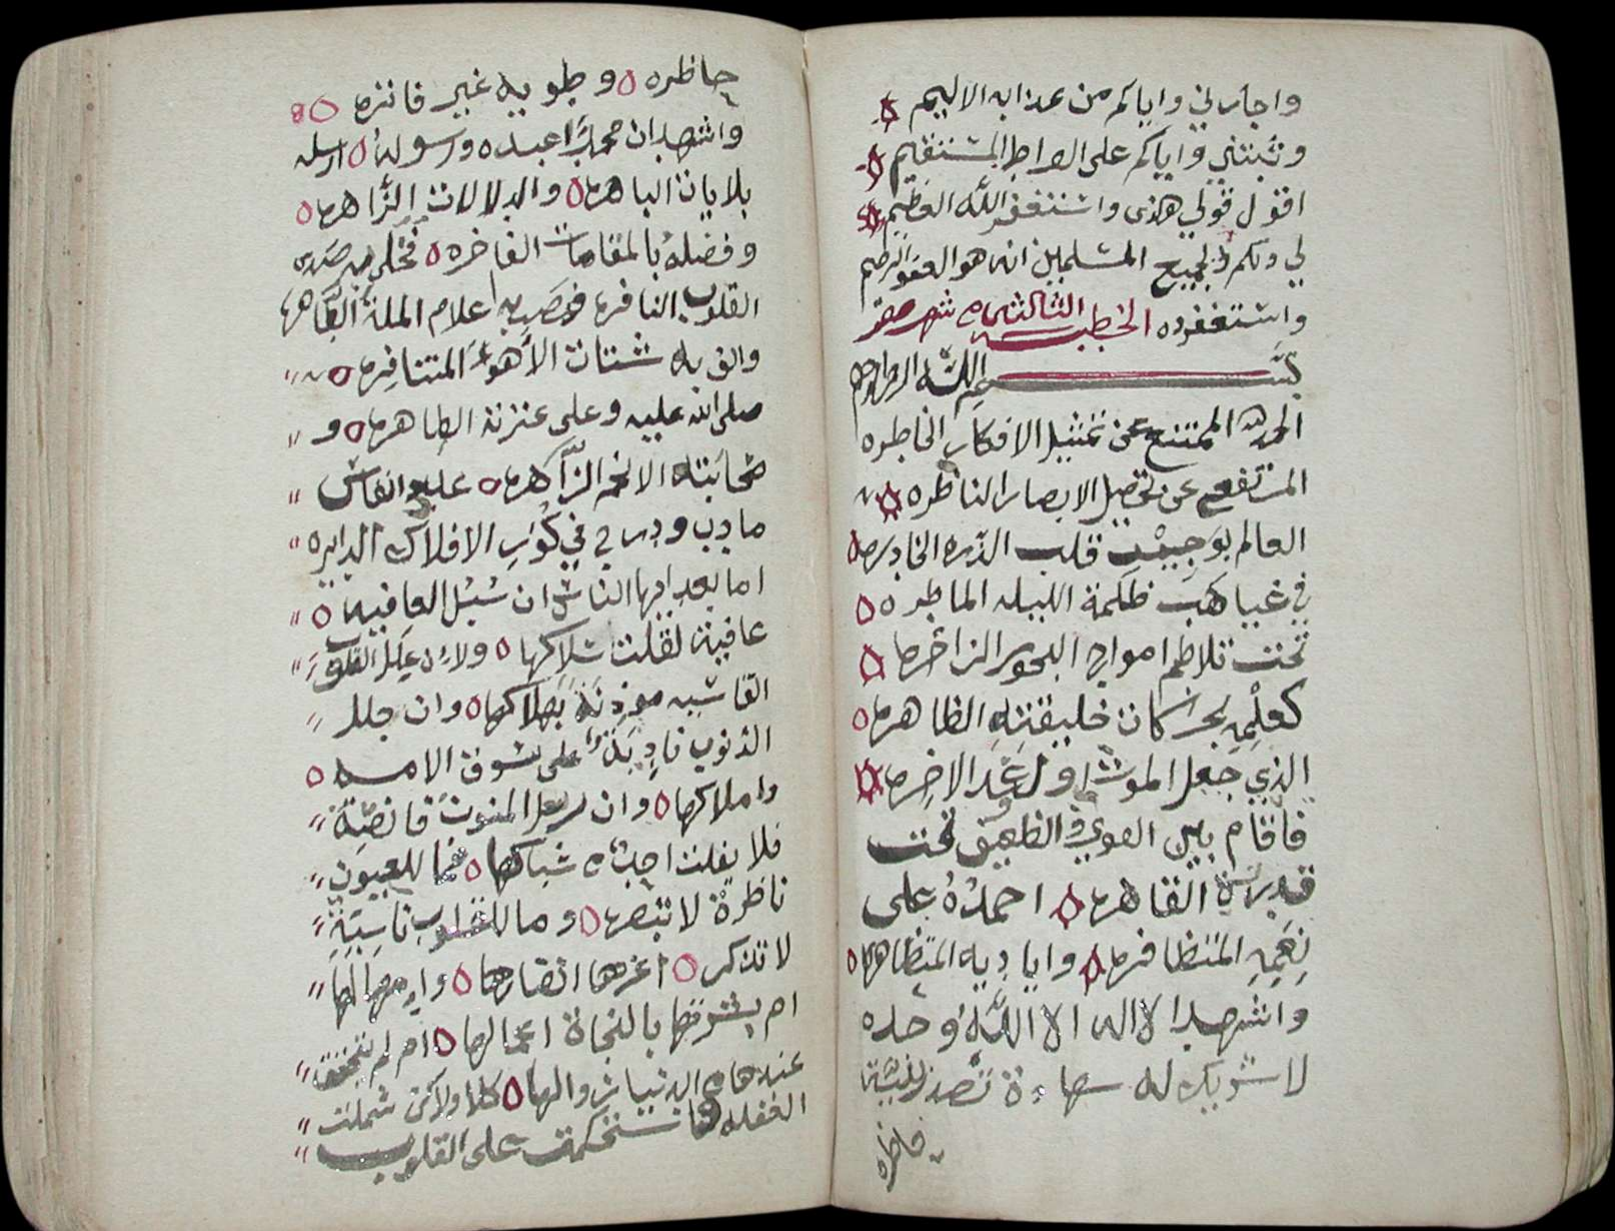 واجارني واياكم من عذابه الاليم
وثبتني واياكم على الصراط المستقيم
اقول قولي هذى واستغفر الله العظيم
لي ولكم ولجميع المسلمين انه هو الغفور الرحيم
واستغفروه الخطبه الثالثه شهر صفر
بسم الله الرحمن الرحيم
الحمد لله الممتنع عن تمثيل الافكار الخاطره
المرتفع عن تحصيل الابصار الناظره
العالم بوجيب قلب الذره الخادره
في غياهب ظلمة الليله الماطره
تحت تلاطم امواج البحور الزاخره
كعلمه بحركات خليقته الظاهره
الذي جعل الموت اول الاخره
فاقام بين القوي والضعيف تحت
قدرته القاهره احمده على
نعمه المتظافره واياديه المتظاهره
واشهد لا اله الا الله وحده
لا شريك له
خاظره
حاظره وطويه غير فاتره
واشهد ان محمدا عبده ورسوله ارسله
بلايات الباهره والدلالات الزاهره
وفضله بالمقامات الفاخره فجلى به صدى
القلوب النافره ونصب به اعلام الملة الطاهره
والف به شتات الأهوء المتنافره
صلى الله عليه وعلى عترته الطاهره و
صحابته الانجم الزاهره
ما دب ودرج في كور الافلاك الدايره
اما بعد ايها الناس ان سبل العافيه
عافية لقلت سلاكها ولان علل القلوب
القاسيه موذنة بهلاكها وان جلل
الذنوب نادبة على
واملاكها وان المنون قانصة
فلا يفلت احد شباكها فما للعيون
ناظرة لا تبصر وما للقلوب ناسية
لا تذكر اغرها انظارها وامهالها
ام بشرتها بالنجاة اعمالها ام لم يتحقق
عندها من الدنيا زوالها كلا ولاكن شملت
الغفله فاستحكمت على القلوب